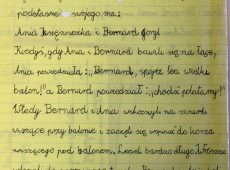 podstawie swojego na:
Ania księżniczka i Bernard
Kiedyś, gdy Ania i Bernard bawili się na łące,
Ania powiedziała: „Bernard, spójrz ten wielki
balon!" a Bernard powiedział: „chodź polatamy!"
Wtedy Bernard i Ania wskoczyli na sznurki
wiszące przy balonie i zaczęli się wspinać do kosza
wiszącego pod balonem. Lecieli bardzo długo. Wreszcie